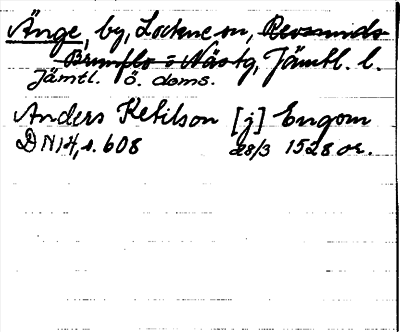 Änge, by, Lockne sn, Revsunds-
Brunflo = Näs tg, Jämtl. l.
Jämtl. ö. doms.
Anders Ketilson [j] Engom
DN 14, s. 608 28/3 1528 or.